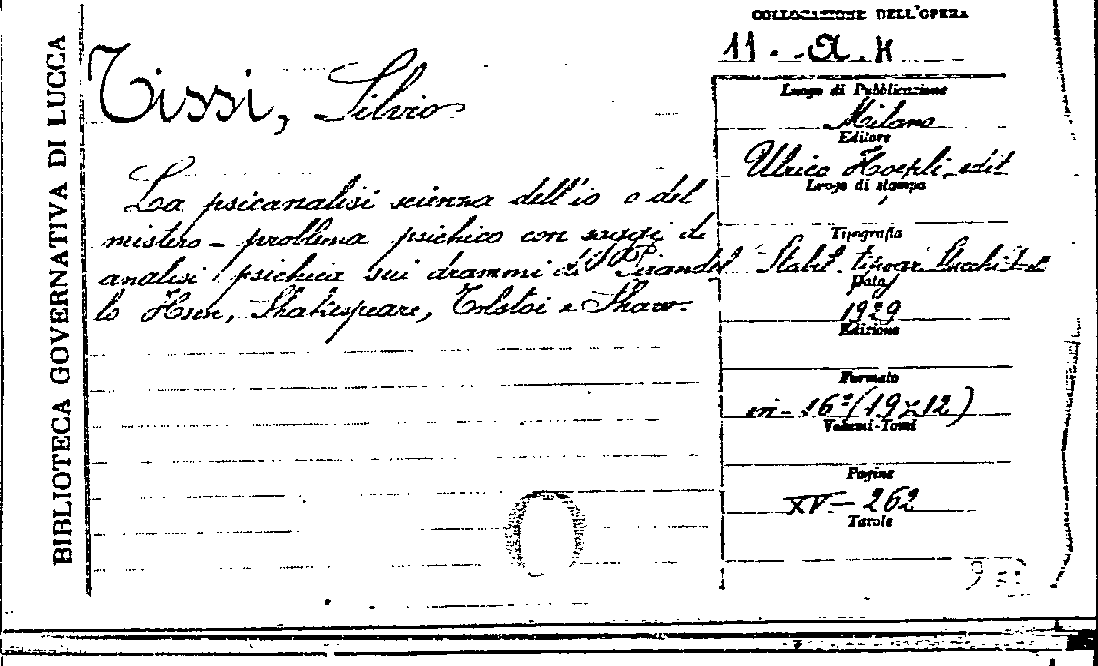 BIBLIOTECA GOVERNATIVA DI LUCCA
COLLOCAZIONE DELL'OPERA
11. A. H
Tissi, Silvio
La psicanalisi scienza dell'io o del
mistero - problema psichico con saggi di
analisi psichica sui drammi di Pirandel
lo Hsen, Shakespeare, Tolstoi e Shaw.
Luogo di Pubblicazione
Milano
Editore
Ulrico Hoepli edit
Luogo di stampa
Tipografia
Stabil. tipogr.
Data
1929
Edizione
Formato
in-16° (19x12)
Volumi-Tomi
Pagine
XV-262
Tavole